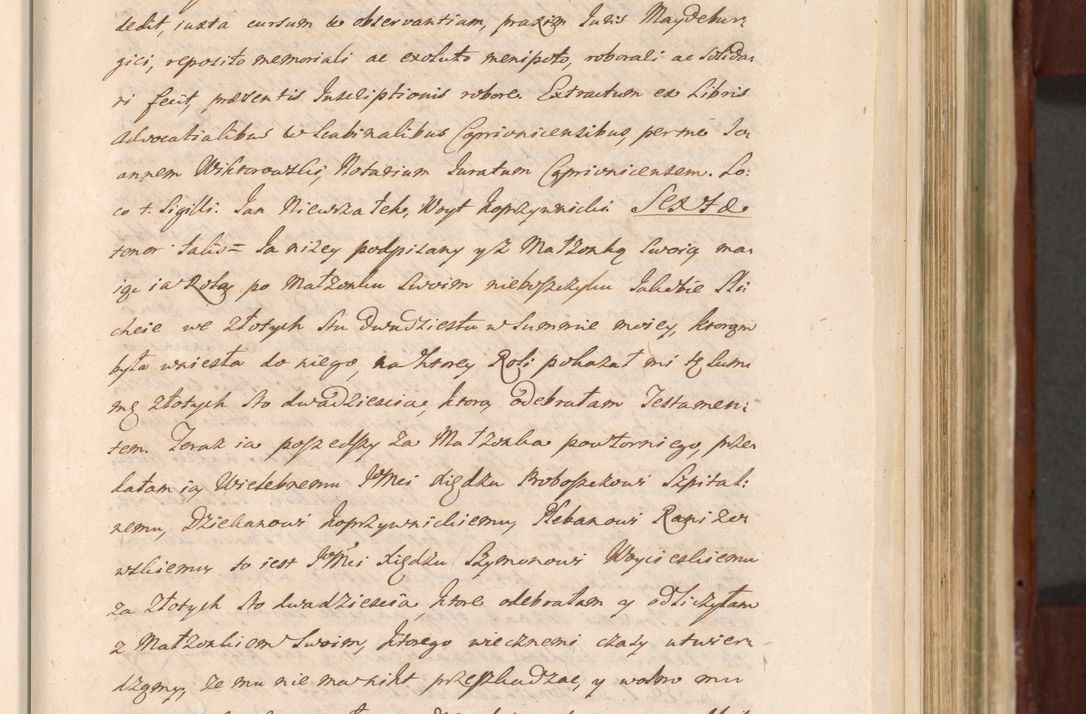 dedit, iuxta cursum et observantiam, praxim Iuris Maydebur,
gici, reposito memoriali ac exoluto menipoto, roborali ac solida,
ri fecit, praesentis Inscriptionis robore. Extractum ex Libris
Advocatialibus et Scabinalibus Coprivnicensibus, per me Io,
annem Wiktorowski, Notarium Iuratum Coprivnicensem. Lo:
co +. Sigilli. Jan Niewszałek, Woyt Koprzywnicki. Sexta.
tenor talis = Ja niżey podpisany yż Małżonką Swoią ma,
iąc ia Rolą po Małżonku Swoim nieboszczyku Jakubie Sli,
cheie we złotych Stu dwudziestu w Summie moiey, ktorąm
była wniesła do niego, na ktorey Roli pokazał mi tę Sum
mę złotych Sto dwadzieścia, ktorą odebrałam Testamen:
tem. Teraz ia poszedszy za Małżonka powtorniego, prze,
dałam ią Wielebnemu JMci Xiędzu Proboszczowi Szpital:
nemu, Dziekanowi Koprzywnickiemu, Plebanowi Raniżow
wskiemu, to iest JMci Xiędzu Szymonowi Woycieskiemu
za złotych Sto dwadzieścia, ktore odebrałam y odliczyłam
z Małżonkiem Swoim, ktorego wiecznemi czasy utwier,
dzamy, że mu nie ma nikt przeszkadzac, y wolno mu